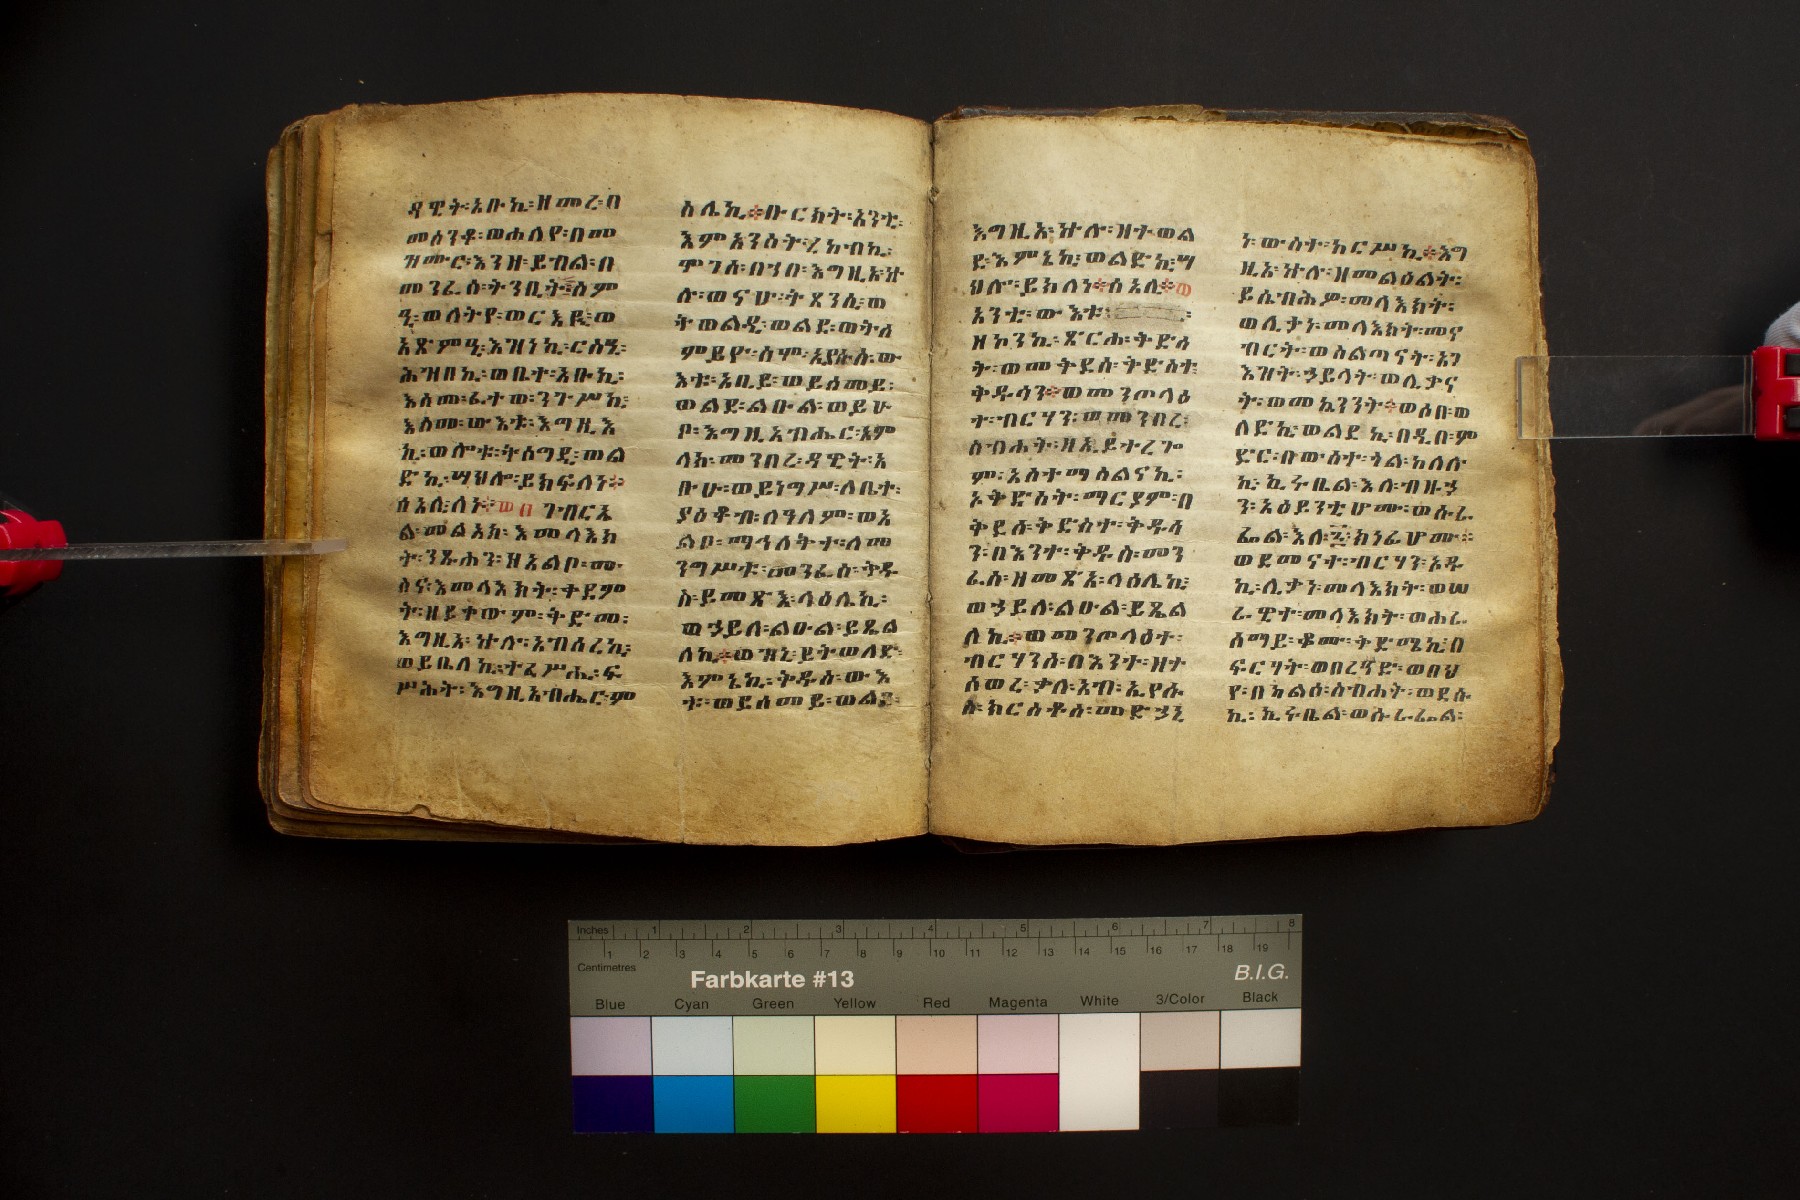 ዳዊት፡አቡኪ፡ዘመረ፡በ
መሰንቆ፡ወሐለየ፡በመ
ዝሙር፡እንዘ፡ይብል፡በ
መንፈሰ፡ትንቢት፡ስም
ዒ፡ወለትየ፡ወርእዪ፡ወ
አጽምዒ፡እዝነኪ፡ርስዒ፡
ሕዝበኪ፡ወቤተ፡አቡኪ፡
እስመ፡ፈተወ፡ንጉሥ፡
እስመ፡ውእቱ፡እግዚእ
ኪ፡ወሎቱ፡ትሰግዲ፡ወል
ድኪ፡ሣህሎ፡ይክፍለነ፨
ሰአሊ፡ለነ፨ወበ ገብርኤ
ል፡መልአክ፡እመላእክ
ት፡ንጹሐን፡ዘአልቦ፡ሙ
ስና፡እመላእክት፡ቀደም
ት፡ዘይቀውም፡ቅድመ፡
እግዚአ፡ኵሉ፡አብሰረኪ፡
ወይቤለኪ፡ተፈሥሒ፡ፍ
ሥሕት፡እግዚአብሔር፡ም
ስሌኪ፨ቡርክት፡አንቲ፡
እምአንስት፡
ሞገሰ፡በኀበ፡እግዚአ፡ኵ
ሉ፡ወናሁ፡ትፀንሲ፡ወ
ትወልዲ፡ወልደ፡ወትሰ
ምይዮ፡ስሞ፡ኢየሱስ፡ው
እቱ፡ዐቢይ፡ወይሰመይ፡
ወልደ፡ልዑል፡ወይሁ
ቦ፡እግዚአብሔር፡አም
ላክ፡መንበረ፡ዳዊት፡አ
ቡሁ፡ወይነግሥ፡ለቤተ፡
ያዕቆብ፡ለዓለም፡ወአ
ልቦ፡ማኅለቅት፡ለመ
ንግሥቱ፡መንፈስ፡ቅዱ
ስ፡ይመጽእ፡ላዕሌኪ፡
ወኃይለ፡ልዑል፡ይጼል
ለኪ፨ወዝኒ፡ይትወለድ፡
እምኔኪ፡ቅዱስ፡ውእ
ቱ፡ወይሰመይ፡ወልደ፡
እግዚአ፡ኵሉ፡ዘተወል
ደ፡እምኔኪ፡ወልድኪ፡ሣ
ህሎ፡ይክለነ፨ሰአሊ፨ወ
አንቲ፡ውእቱ፡
ዘኮንኪ፡ጽርሐ፡ቅድሳ
ት፡ወመቅደሰ፡ቅድስት፡
ቅዱሳን፨ወመንጦላዕ
ተ፡ብርሃን፡ወመንበረ፡
ስብሐት፡ዘኢይተረጐ
ም፡አስተማስልናኪ፡
ኦቅድስት፡ማርያም፡በ
ቅድሳ፡ቅድስተ፡ቅዱሳ
ን፡በእንተ፡ቅዱስ፡መን
ፈስ፡ዘመጽአ፡ላዕሌኪ፡
ወኃይለ፡ልዑል፡ይጼል
ለኪ፨ወመንጦላዕተ፡
ብርሃንሰ፡በእንተ፡ዘተ
ሰወረ፡ቃለ፡አብ፡ኢየሱ
ስ፡ክርስቶስ፡መድኃኒ
ነ፡ውስተ፡ከርሥኪ፨እግ
ዚአ፡ኵሉ፡ዘመልዕልት፡
ይሴብሕዎ፡መላእክት፡
ወሊቃነ፡መላእክት፡መና
ብርት፡ወስልጣናት፡አጋ
እዝት፡ኃይላት፡ወሊቃና
ት፡ወመኳንንት፨ወሰበ፡ወ
ለድኪ፡ወልደኪ፡በዲበ፡ም
ድር፡በውስተ፡ጎል፡ከለሉ
ኪ፡ኪሩቤል፡እለ፡ብዙኃ
ን፡አዕይንቲሆሙ፡ወሱራ
ፌል፡እለ፡፮ክነፊሆሙ፨
ወደመናተ፡ብርሃን፡አዱ
ኪ፡ሊቃነ፡መላእክት፡ወሠ
ራዊተ፡መላእክት፡ወሐራ
ሰማይ፡ቆሙ፡ቅድሜኪ፡በ
ፍርሃት፡ወበረዓድ፡ወበህ
የ፡በከልዑ፡ስብሐት፡ወደሱ
ኪ፡ኪሩቤል፡ወሱራፌል፡
Inches 1 2 3 4 5 6 7 8
1 2 3 4 5 6 7 8 9 10 11 12 13 14 15 16 17 18 19
Centimetres
Farbkarte #13
B.I.G.
Blue Cyan Green Yellow Red Magenta White 3/Color Black